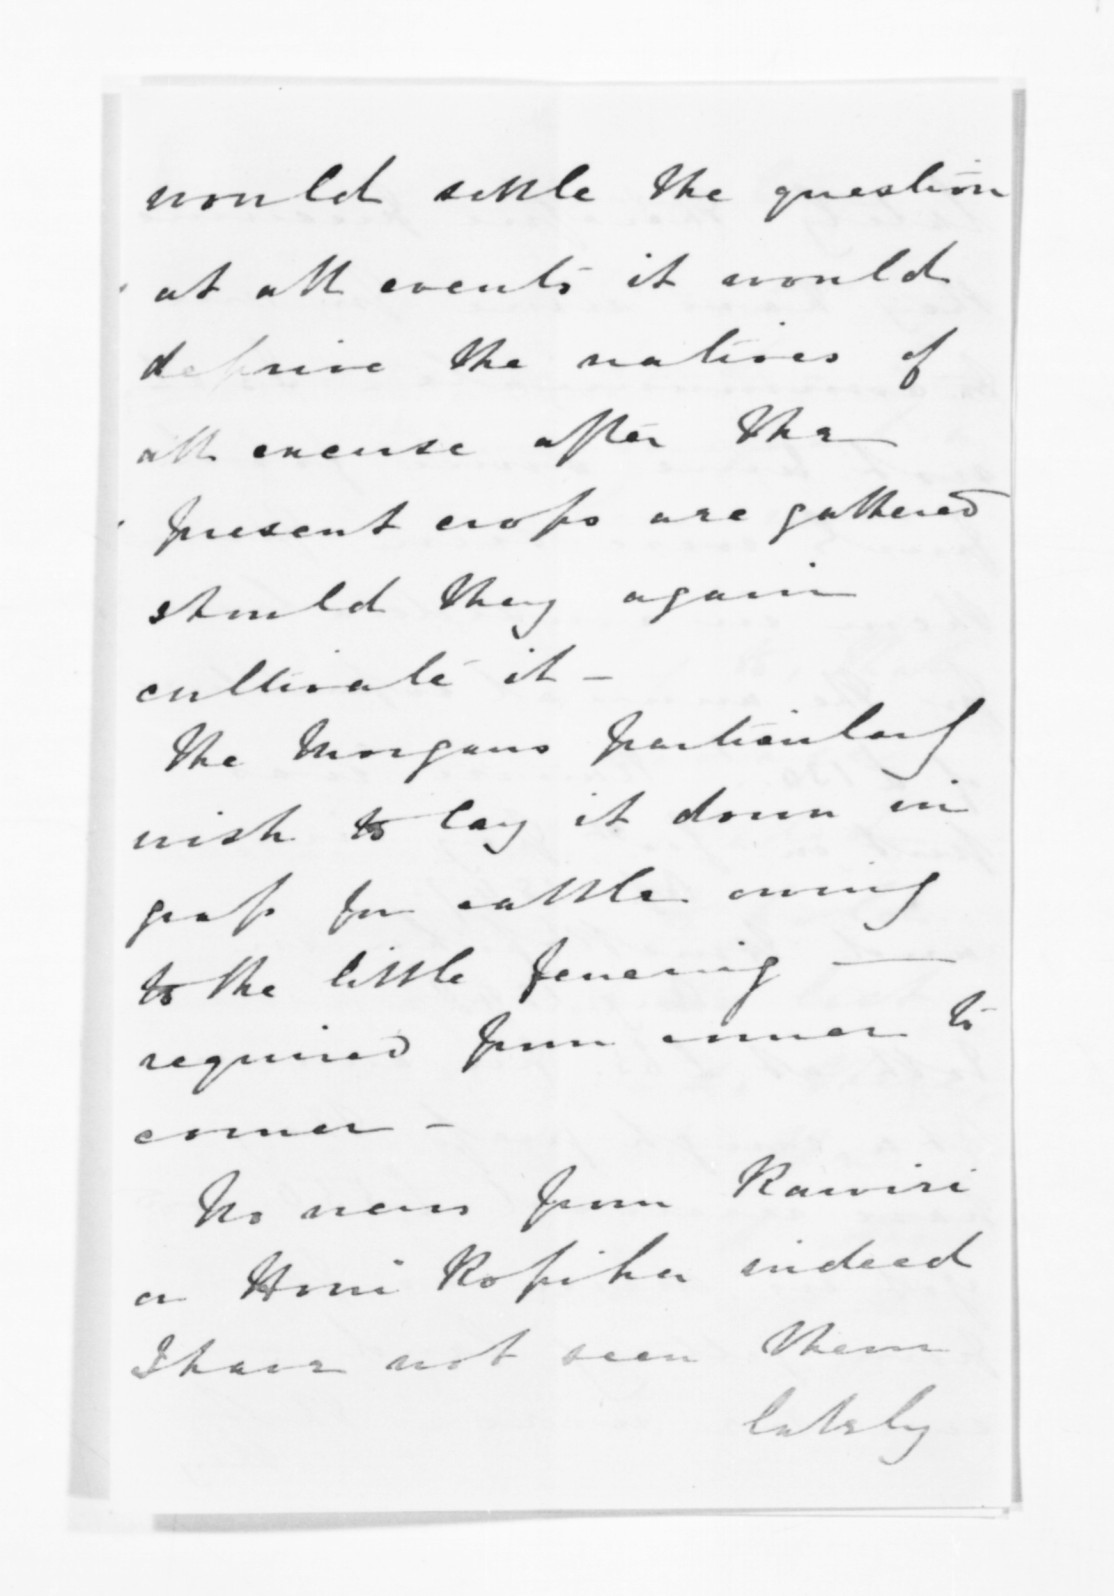 would settle the question
at all events it would
deprive the natives of
all excuse after the
present crops are gathered
should they again
cultivate it -
The Morgans particularly
wish to lay it down in
grass for cattle owing
to the little fencing —
required from corner to
corner -
No news from Rawiri
or Honi Ropiha indeed
I have not seen them
lately